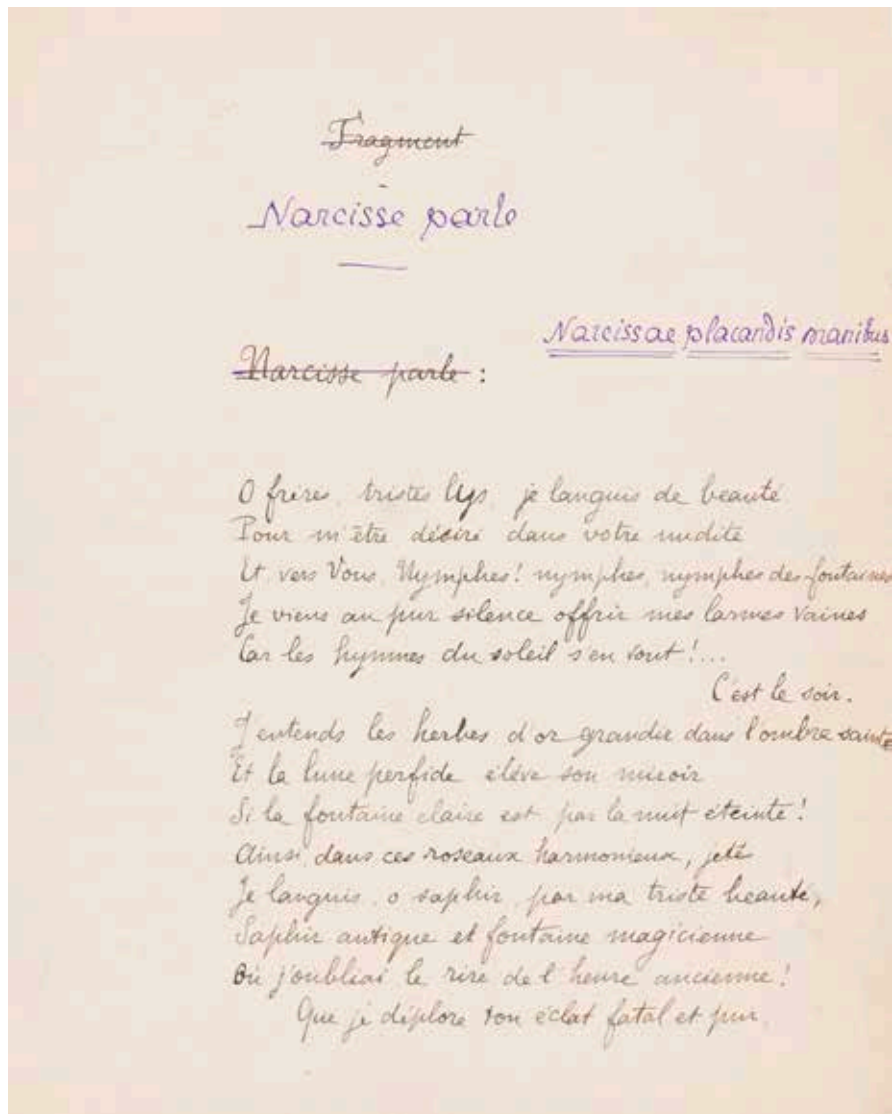 Fragment
Narcisse parle
Narcissae placandis manibus
Narcisse parle :
O frères, tristes lys, je languis de beauté
Pour m'être désiré dans votre nudité
Et vers Vous, Nymphes! nymphes, nymphes des fontaines
Je viens au pur silence offrir mes larmes vaines
Car les hymnes du soleil s'en vont!...
C'est le soir.
J'entends les herbes d'or grandir dans l'ombre sainte
Et la lune perfide élève son miroir
Si la fontaine claire est par la nuit éteinte!
Ainsi, dans ces roseaux harmonieux, jeté
Je languis, o saphir, par ma triste beauté,
Saphir antique et fontaine magicienne
Où j'oubliai le rire de l'heure ancienne!
Que je déplore ton éclat fatal et pur,